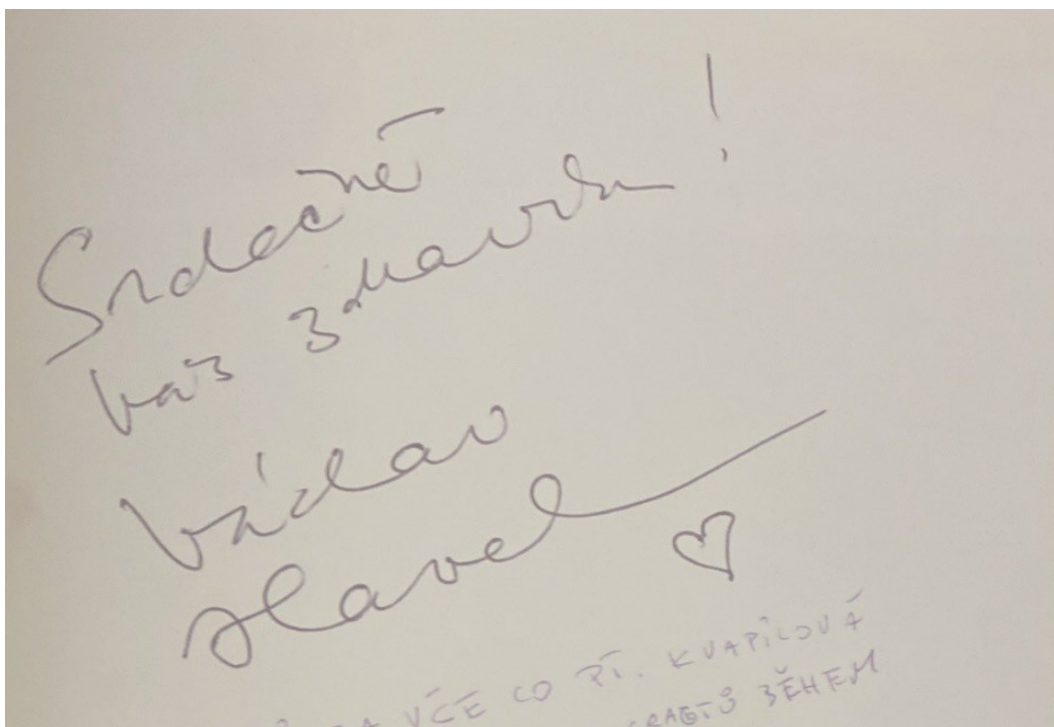 Srdečně
vás zdravím!
Václav
Havel
VČE CO PÍ. KVAPILOVÁ
BĚHEM